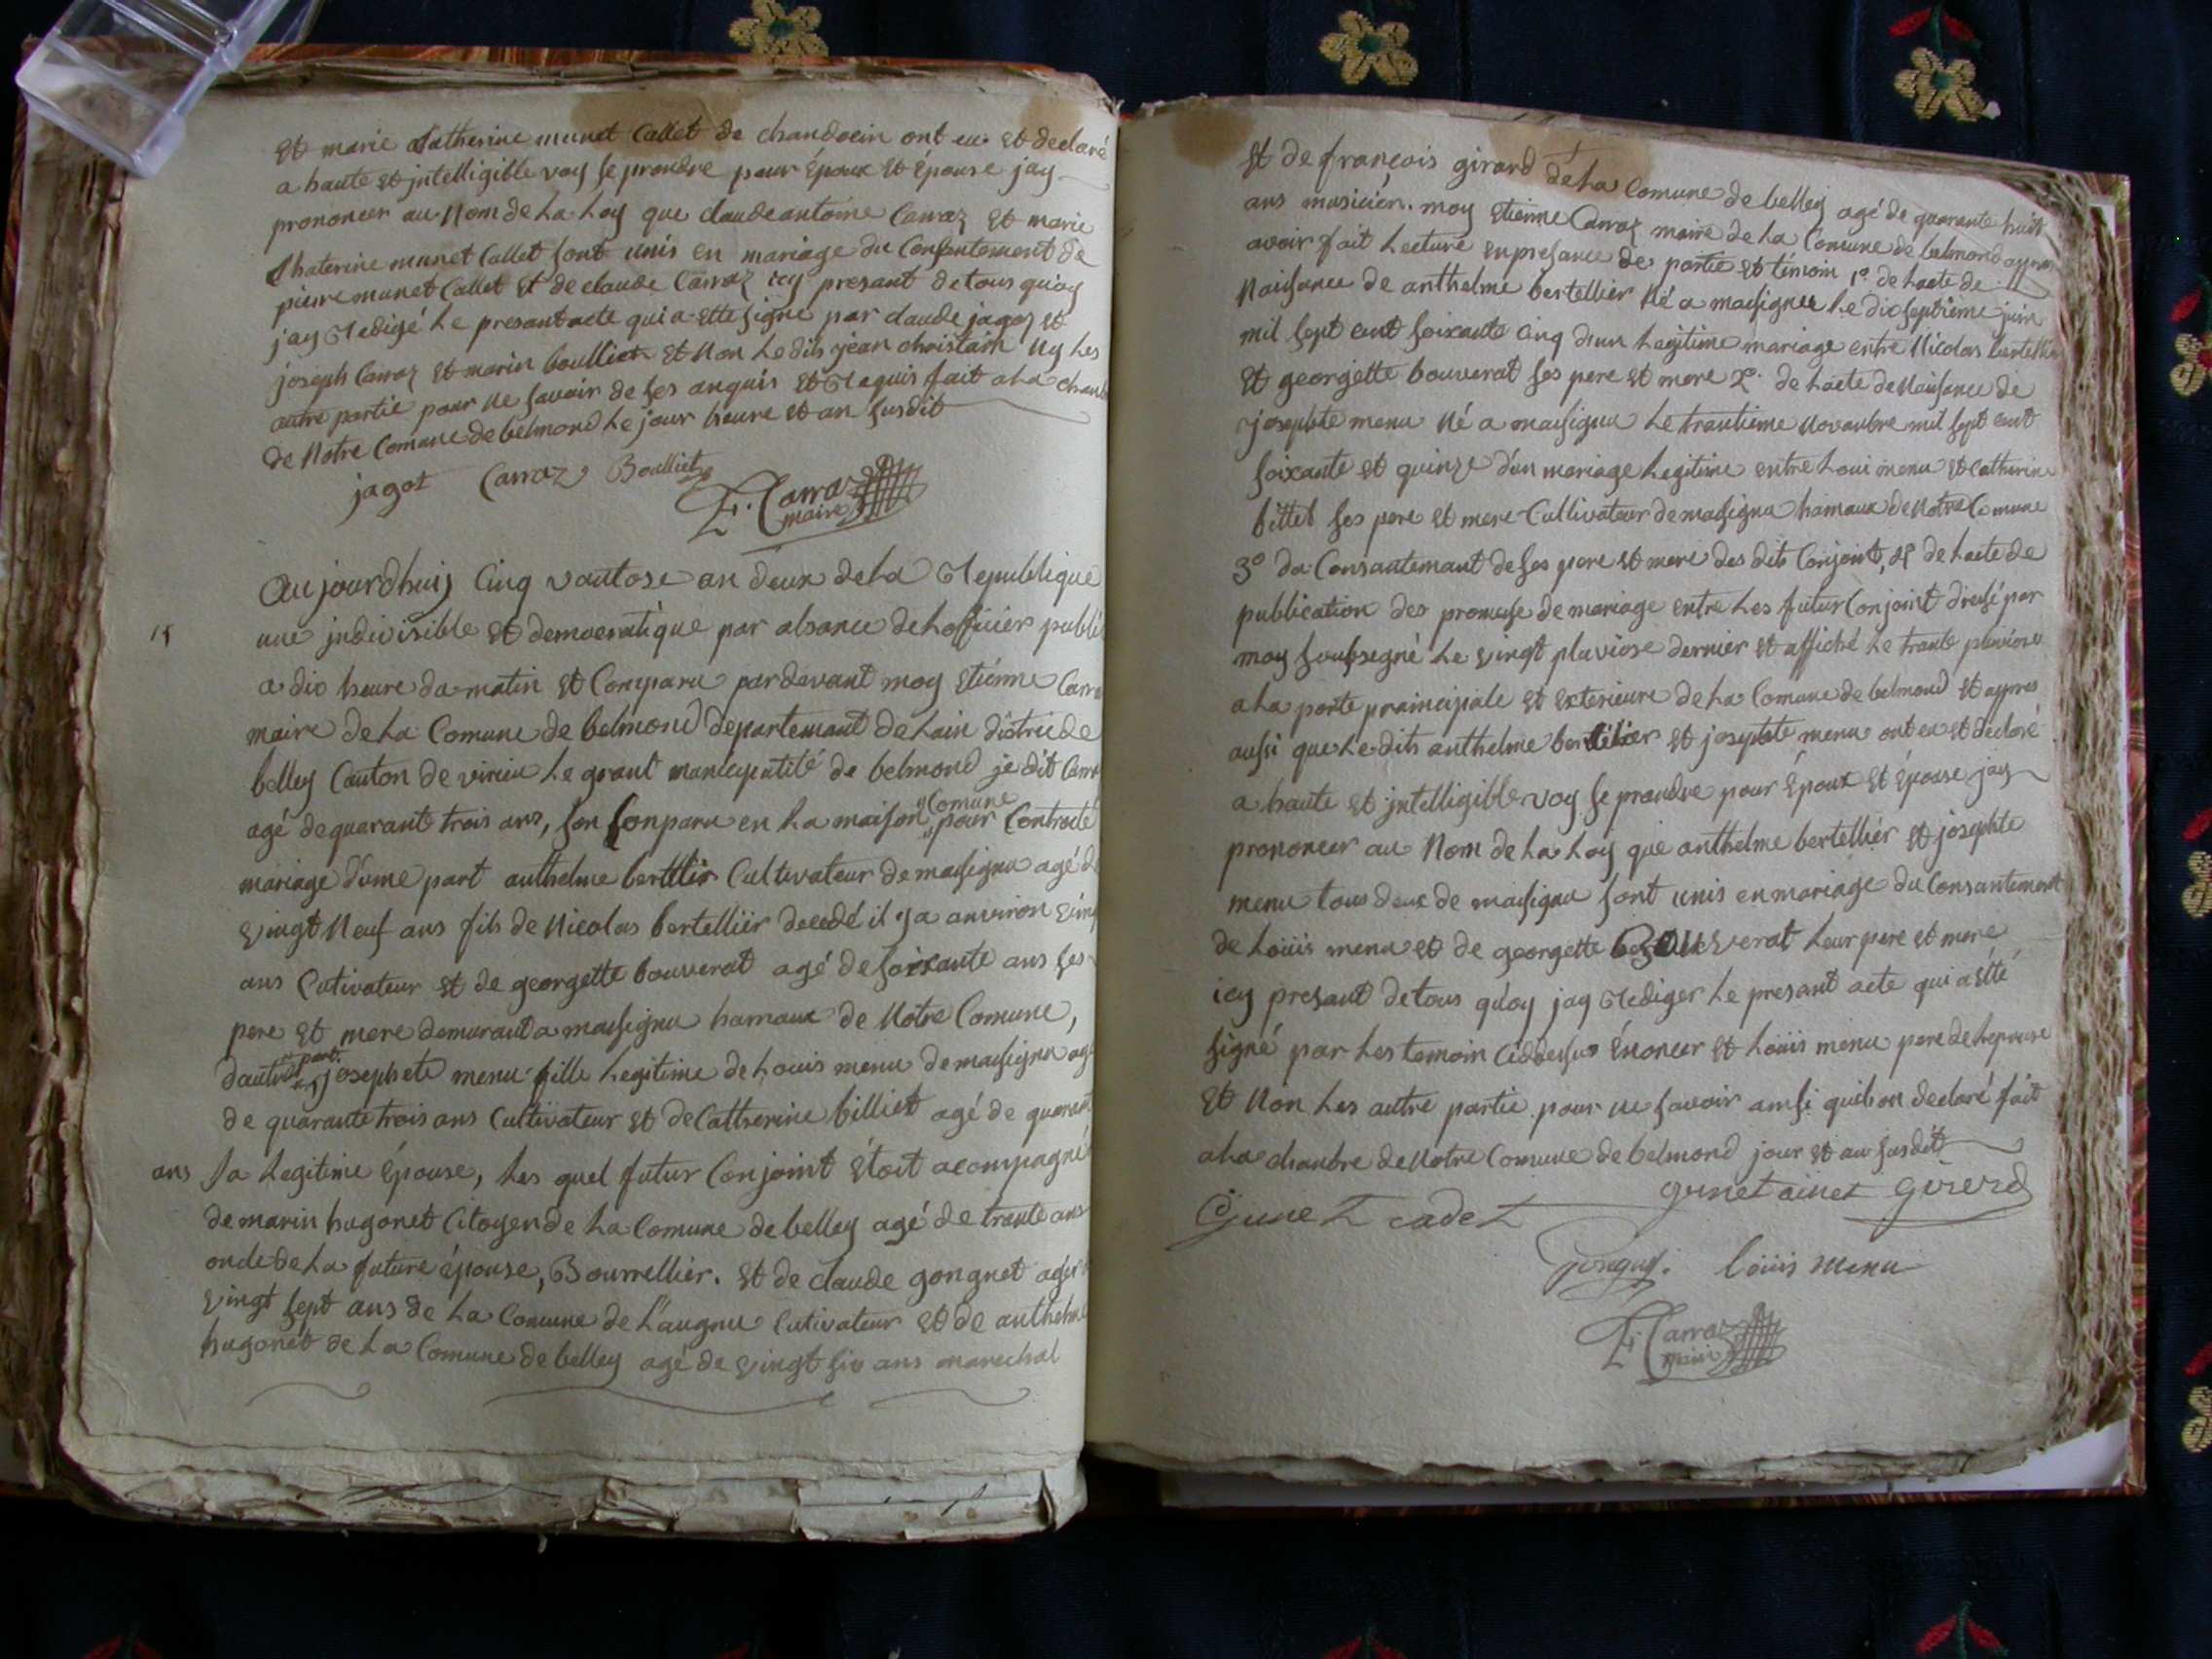 Et marie Catherine munet Callet de chandocin ont eu et declaré
a haute et jntelligible voy se prendre pour Époux Et Épouse jay
prononcer au Nom de La Loy que claude antoine Carraz Et marie
Chaterine munet Callet sont unis en mariage du Consentement de
pierre munet Callet Et de claude Carraz icy presant de tous quoy
jay Redigé Le presant acte qui a Ette signé par claude jagoz et
joseph Carraz Et marin boulliet Et Non Le dits jean christain Ny Les
autre partie pour ne savoir de Ses anquis Et Requis fait a La chanb
de Notre Comune de belmond Le jour heure et an susdit
jagot Carraz Boulliet
E. Carraz
maire
15
Aujourdhuij Cinq vantose an deux de La Republique
une jndivisible Et democratique par absance de Lofficier publi
a dix heure du matin Et Comparu pardevant moy Etienne Carra
maire de La Comune de belmond departemant de Lain districde
belley Canton de virieu Le grant mancipatité de belmond je dit Carra
agé de quarant trois ans, son Conparu en La maison "Comune" pour Contracté
mariage dúne part anthelme berttlir Cultivateur de masignu agé d
vingt Neuf ans fils de Nicolas bertellier decedé il ya anviron vint
ans Cutivateur Et de georgette bouverat agé de soixante ans ses
pere Et mere demurant a massignu hamaux de Notre Comune,
dautre "part" josephete menu fille Legitime de Louis menu de massignu agé
de quarante trois ans Cultivateur Et de Catherine billiet agé de quarent
ans sa Legitime Épouse, Les quel futur Conjoint Étoit acompagné
de marin hugonet Citoyen de La Comune de belley agé de trante ans
oncle de La future épouse, Bourrellier. Et de claude gonguet agé
vingt sept ans de La Comune de Laugnu Cutivateur Et de anthelm
hugonet de La Comune de belley agé de vingt six ans marechal
Et de françois girard de La Comune de belley agé de quarante huit
ans musicien. moy Etienne Carraz maire de La Comune de belmond appres
avoir fait Lecture en presance des partie Et témoin 1º. de Lacte de
Naisance de anthelme bertellier Né a massignu Le dix septième juin
mil sept cent soixante Cinq d'un Legitime mariage entre Nicolas bertellier
Et georgette bouverat ses pere Et mere 2º. de Lacte de Naisance de
josephte menu Né a massignu Le trantieme Novanbre mil sept cent
soixante Et quinze d'un mariage Legitime entre Loui menu Et Catherine
billet ses pere Et mere Cultivateur de massignu hamaux de Notre Comune
3º du Consantemant de ses pere Et mere des dits Conjoint, Et de Lacte de
publication des promesse de mariage entre Les futur Conjoint dressé par
moy soussegné Le vingt pluviose dernier Et affiché Le trante pluviose
a La porte prainicipale Et Exterieure de La Comune de belmond Et appres
aussi que Le dits anthelme bertelier Et josephte menu ont eu Et declaré
a haute Et jntelligible voy se prandre pour Époux Et Épouse jay
prononcer au Nom de La Loy que anthelme bertellier Et josephte
menu tous deux de massignu sont unis en mariage du Consantement
de Loüis menu Et de georgette Bouverat Leur pere Et mere
icy presant de tous qúoy jay Rediger Le presant acte qui a Étté
signé par Les temoin Ciddessus Énoncer Et Loüis menu pere de Lepouse
Et Non Les autre partie pour ne savoir ainsi quils on declaré fait
a La chanbre de Notre Comune de belmond jour Et an susdit
gunet ainet Girerd
Gunet cadet
Louis menu
E. Carraz
maire